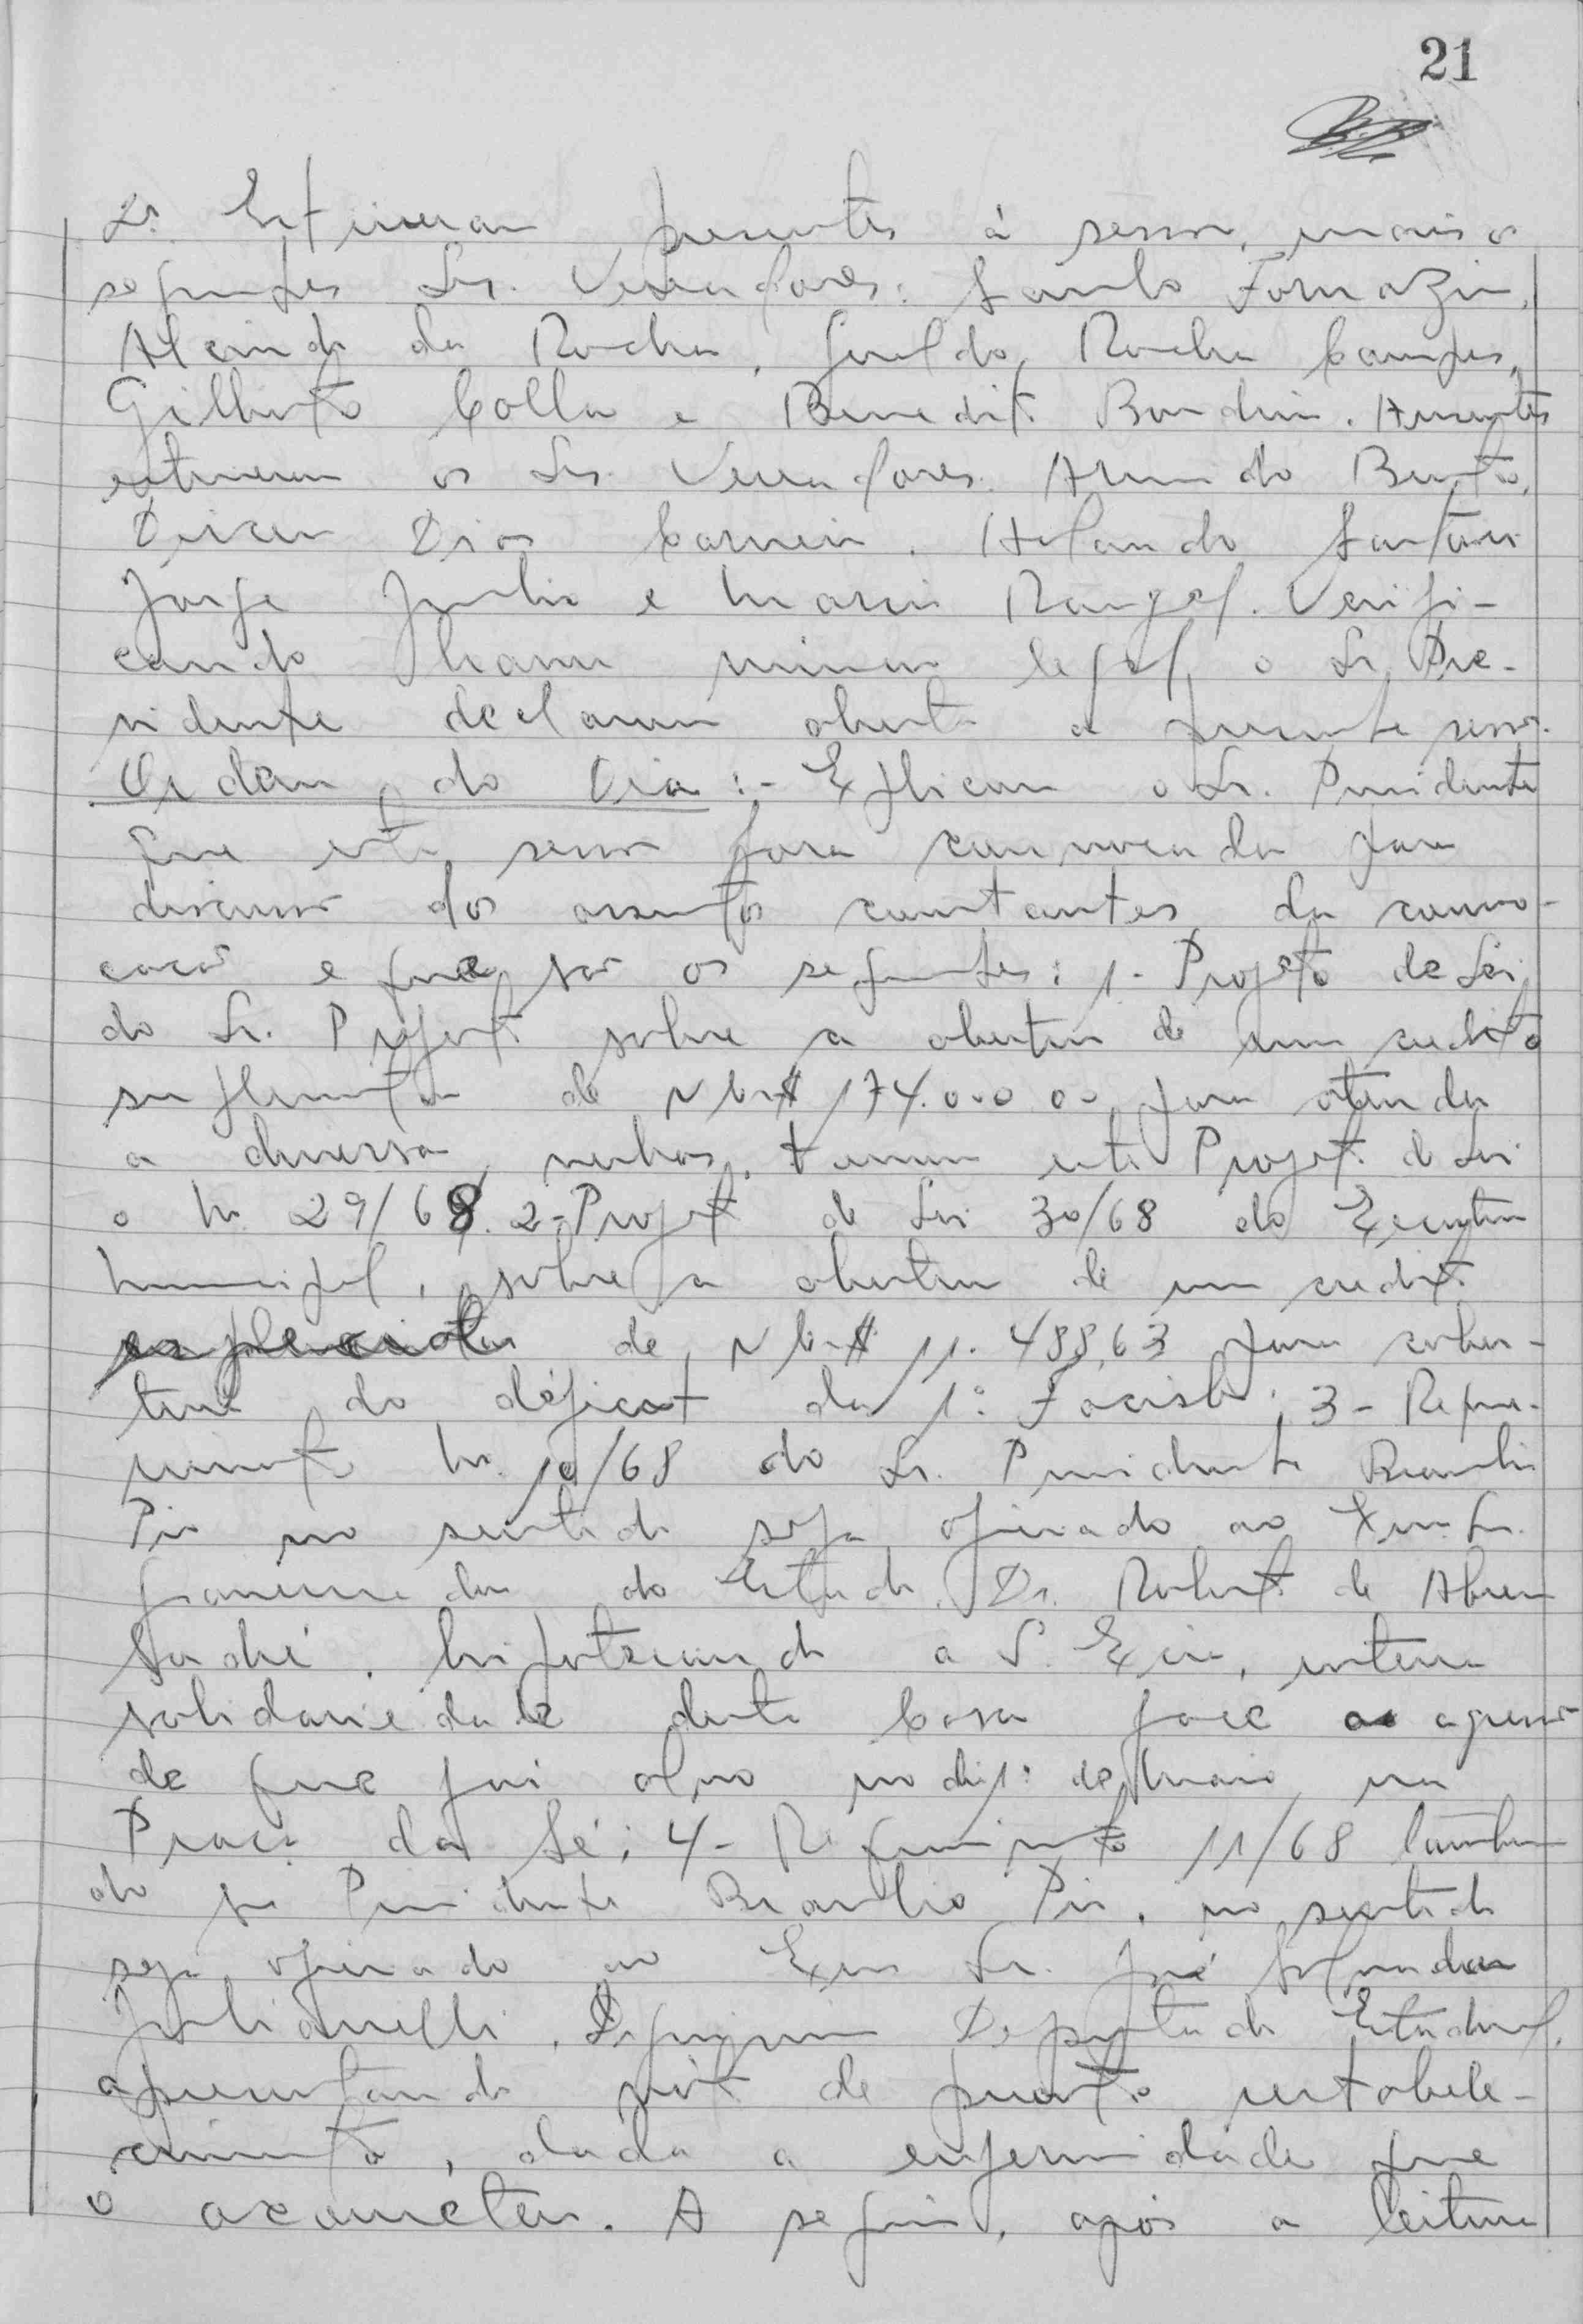 21
Sr. Estiveram presentes à sessão, mais os
seguintes Srs. Vereadores: Santo Fornazin,
Alcindo da Rocha, Geraldo Rocha Campos,
Gilberto Colla e Benedito Bondin. Ausentes
estiveram os Srs. Vereadores. Armindo Bento,
Dirceu Dias Carneiro. Orlando Santana
Jorge Julio e Mario Rangel. Verifi-
cando haver número legal, o Sr. Pre-
sidente declarou aberta a presente sessão.
Ordem do Dia :- Explicou o Sr. Presidente
que esta sessão fora convocada para
discussão dos assuntos constantes da convo-
cação e que são os seguintes: 1- Projeto de Lei
do Sr. Prefeito sobre a abertura de um credito
suplementar de NCr$ 174.000.00 para atender
a diversas verbas, tomou este Projeto de Lei
o no 29/68. 2- Projeto de Lei 30/68 do Executivo
Municipal, sobre a abertura de um credito
de NCr$ 11.488,63 para cober-
tura do déficit da 1ª ; 3- Reque-
rimento no. 10/68 do Sr. Presidente Braulio
Pio no sentido seja oficiado ao Exmo Sr.
Governador do Estado, Dr. Roberto de Abreu
Sodré. hipotecando a S. Excia, inteira
solidariedade desta Casa face a agressão
de que foi alvo no dia 1º de Maio, na
Praça da Sé; 4- Requerimento 11/68 também
do Sr Presidente Braulio Pio, no sentido
seja oficiado ao Exmo Sr. José Salvador
Julianelli, Deputado Estadual,
apresentando voto de pronto restabele-
cimento, dada a enfermidade que
o acometeu. A seguir, após a leitura